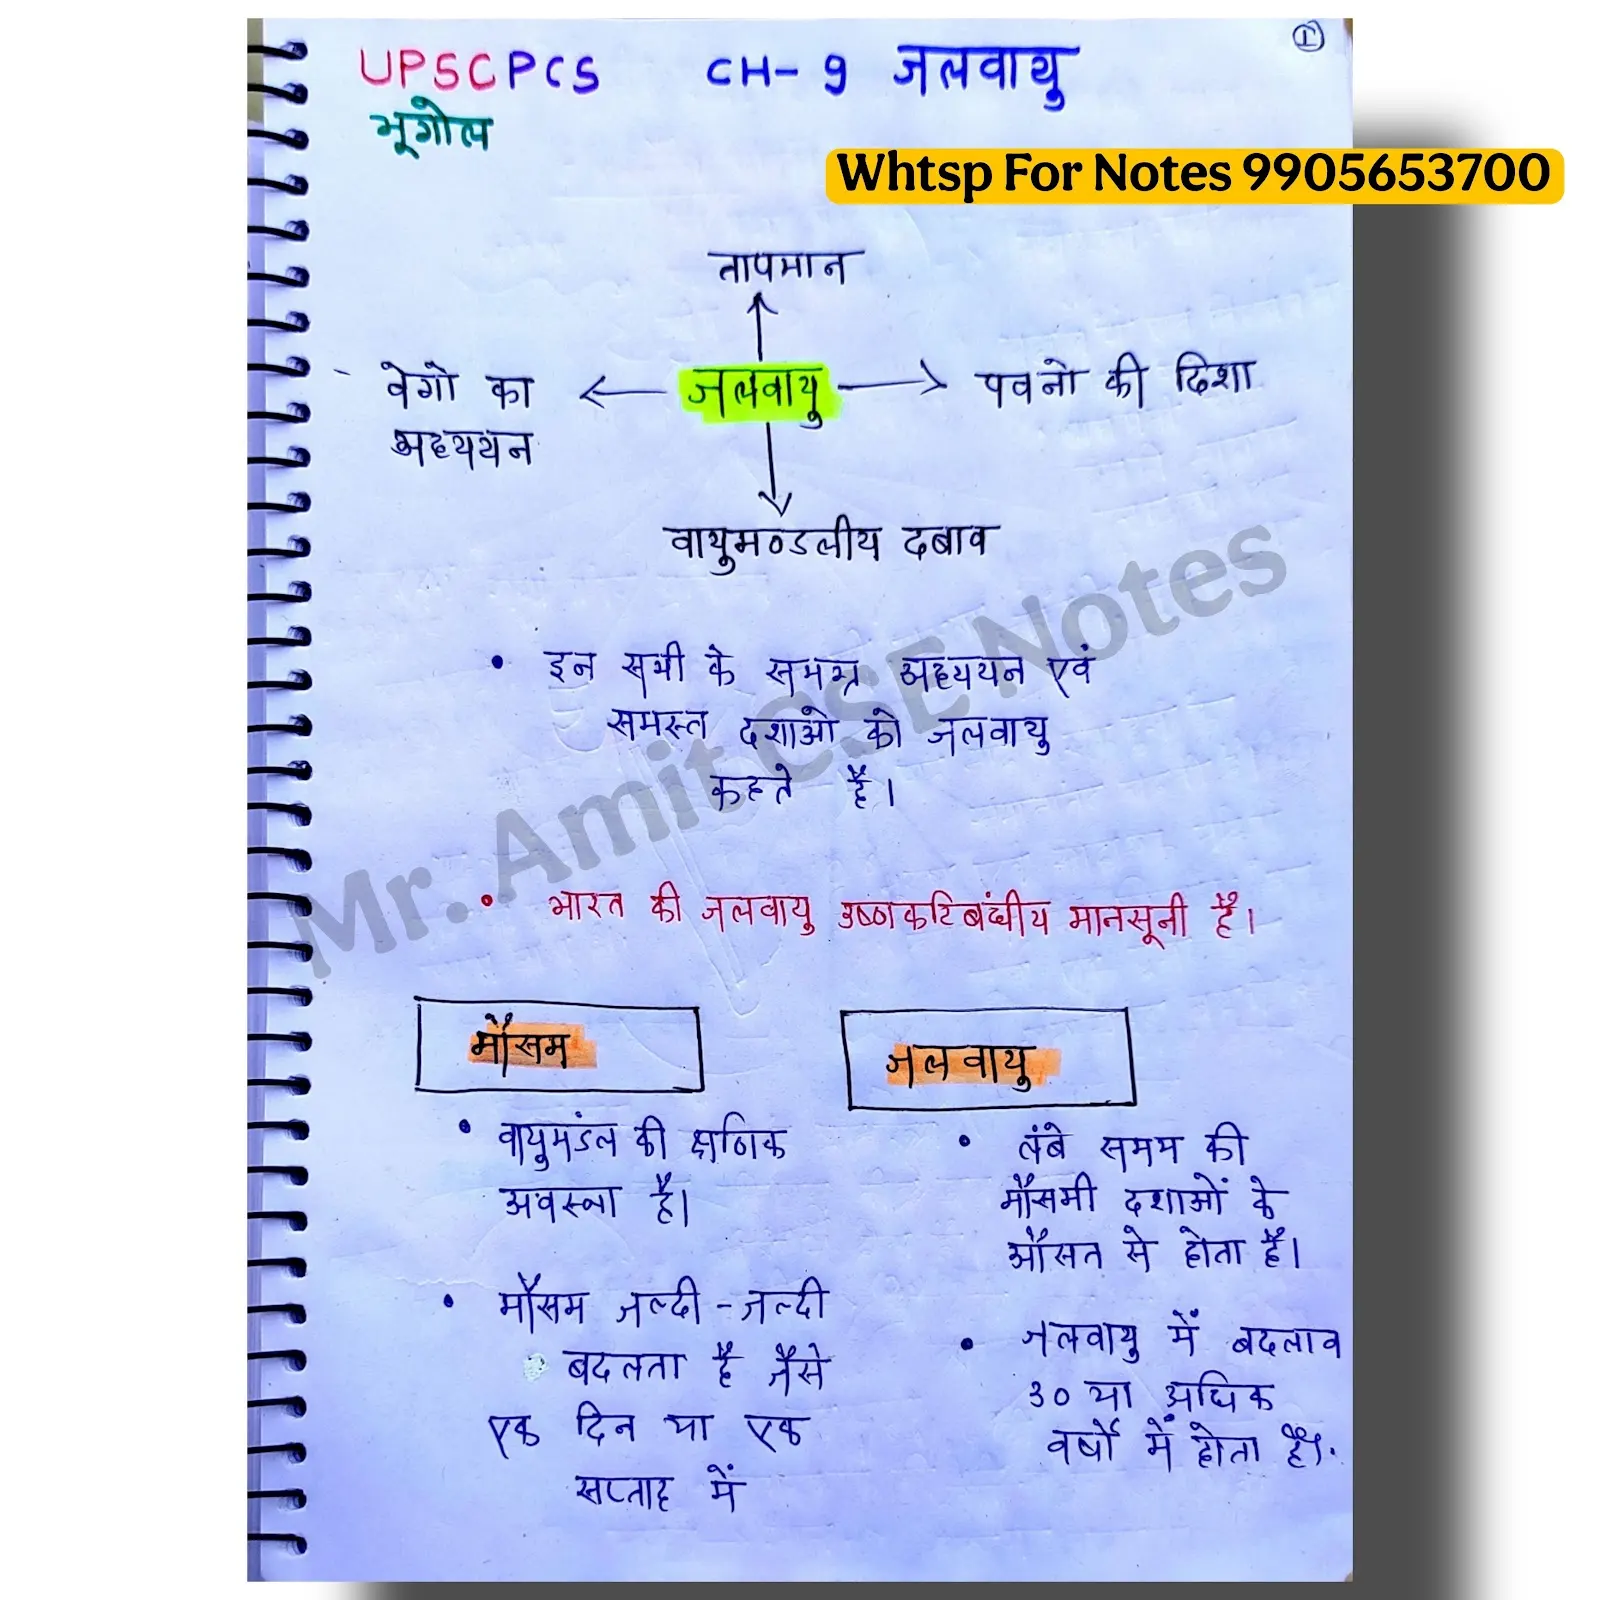 1
UPSC PCS CH- 9 जलवायु
भूगोल
Whtsp For Notes 9905653700
तापमान
वेगो का जलवायु पवनो की दिशा
अध्ययन
वायुमण्डलीय दबाव
• इन सभी के समग्र अध्ययन एवं
समस्त दशाओ को जलवायु
कहते है।
Mr. Amit CSE Notes
• भारत की जलवायु उष्णकटिबंधीय मानसूनी है।
मौसम
• वायुमंडल की क्षणिक
अवस्था है।
• मौसम जल्दी - जल्दी
बदलता है जैसे
एक दिन या एक
सप्ताह में
जलवायु
• लंबे समम की
मौसमी दशाओं के
औसत से होता है।
• जलवायु में बदलाव
30 या अधिक
वर्षो में होता है।